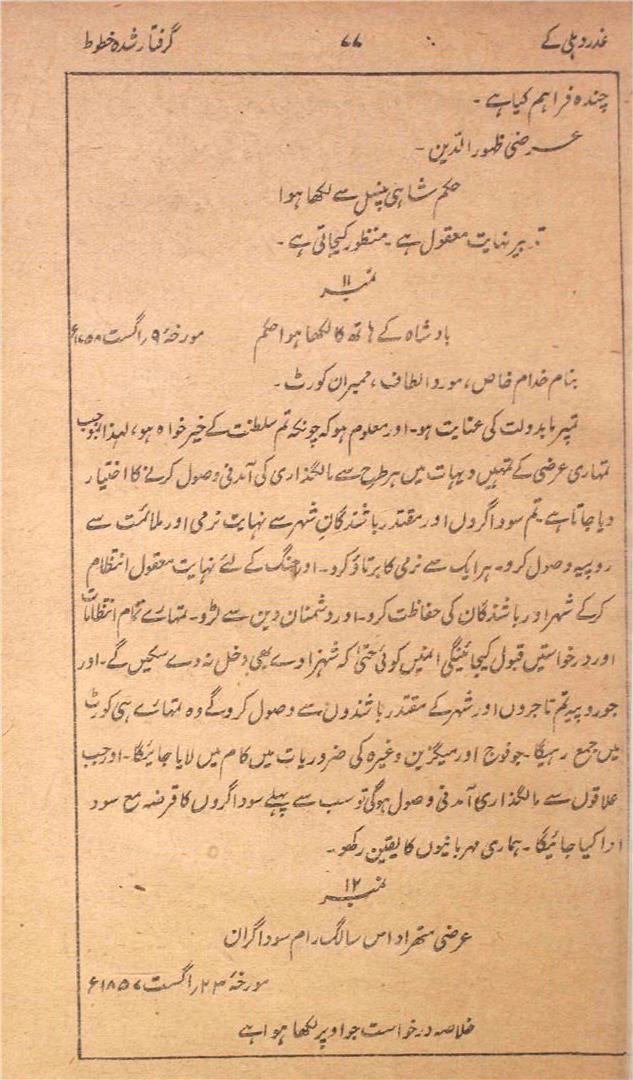 غدر دہلی کے ۷۷ گرفتار شدہ خطوط
چندہ فراہم کیا ہے۔
عرضی ظہور الدین۔
حکم شاہی پنسل سے لکھا ہوا
تدبیر نہایت معقول ہے۔ منظور کیجاتی ہے۔
نمبر ۱۱
بادشاہ کے ہاتھ کا لکھا ہوا حکم مورخہ ۹ اگست
بنام خدام خاص، مورد الطاف، ممبران کورٹ۔
تمپر مابدولت کی عنایت ہو۔ اور معلوم ہو کہ چونکہ تم سلطنت کے خیر خواہ ہو، لہذا بموجب
تمہاری عرضی کے تمہیں دیہات میں ہر طرح سے مالگذاری کی آمدنی وصول کرنے کا اختیار
دیا جاتا ہے۔ تم سوداگروں اور مقتدر باشندگان شہر سے نہایت نرمی اور ملائمت سے
روپیہ وصول کرو۔ ہر ایک سے نرمی کا برتاؤ کرو۔ اور جنگ کے لئے نہایت معقول انتظام
کر کے شہر اور باشندگان کی حفاظت کرو۔ اور دشمنان دین سے لڑو۔ تمہارے تمام انتظامات
اور درخواستیں قبول کیجائینگی انمیں کوئی حتیٰ کہ شہزادے بھی دخل نہ دے سکیں گے۔ اور
جو روپیہ تم تاجروں اور شہر کے مقتدر باشندوں سے وصول کرو گے وہ تمہارے ہی کورٹ
میں جمع رہیگا۔ جو فوج اور میگزین وغیرہ کی ضروریات میں کام میں لایا جائیگا۔ اور جب
علاقوں سے مالگذاری آمدنی وصول ہوگی تو سب سے پہلے سوداگروں کا قرضہ مع سود
ادا کیا جائیگا۔ ہماری مہربانیوں کا یقین رکھو۔
نمبر ۱۲
عرضی متھرا داس سالگ رام سوداگران
مورخہ ۲۳ اگست ۱۸۵۷ء
خلاصہ درخواست جو اوپر لکھا ہوا ہے